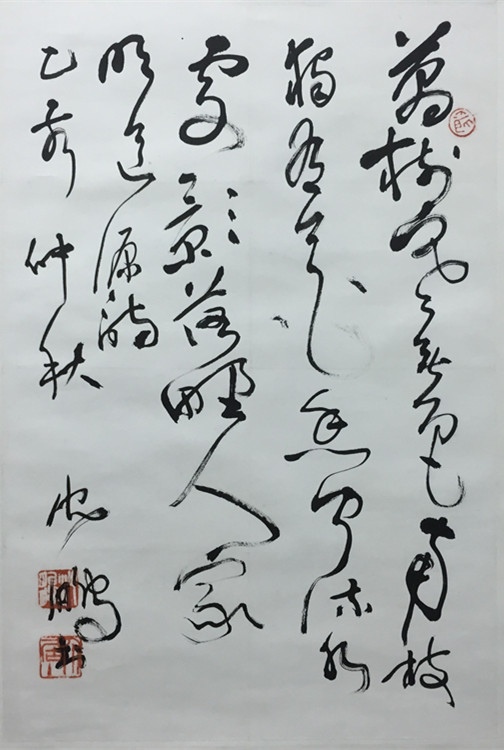 萬樹寒無色南枝
獨有花香聞流水
處影落野人家
明道源詩
乙酉仲秋
沈鵬書